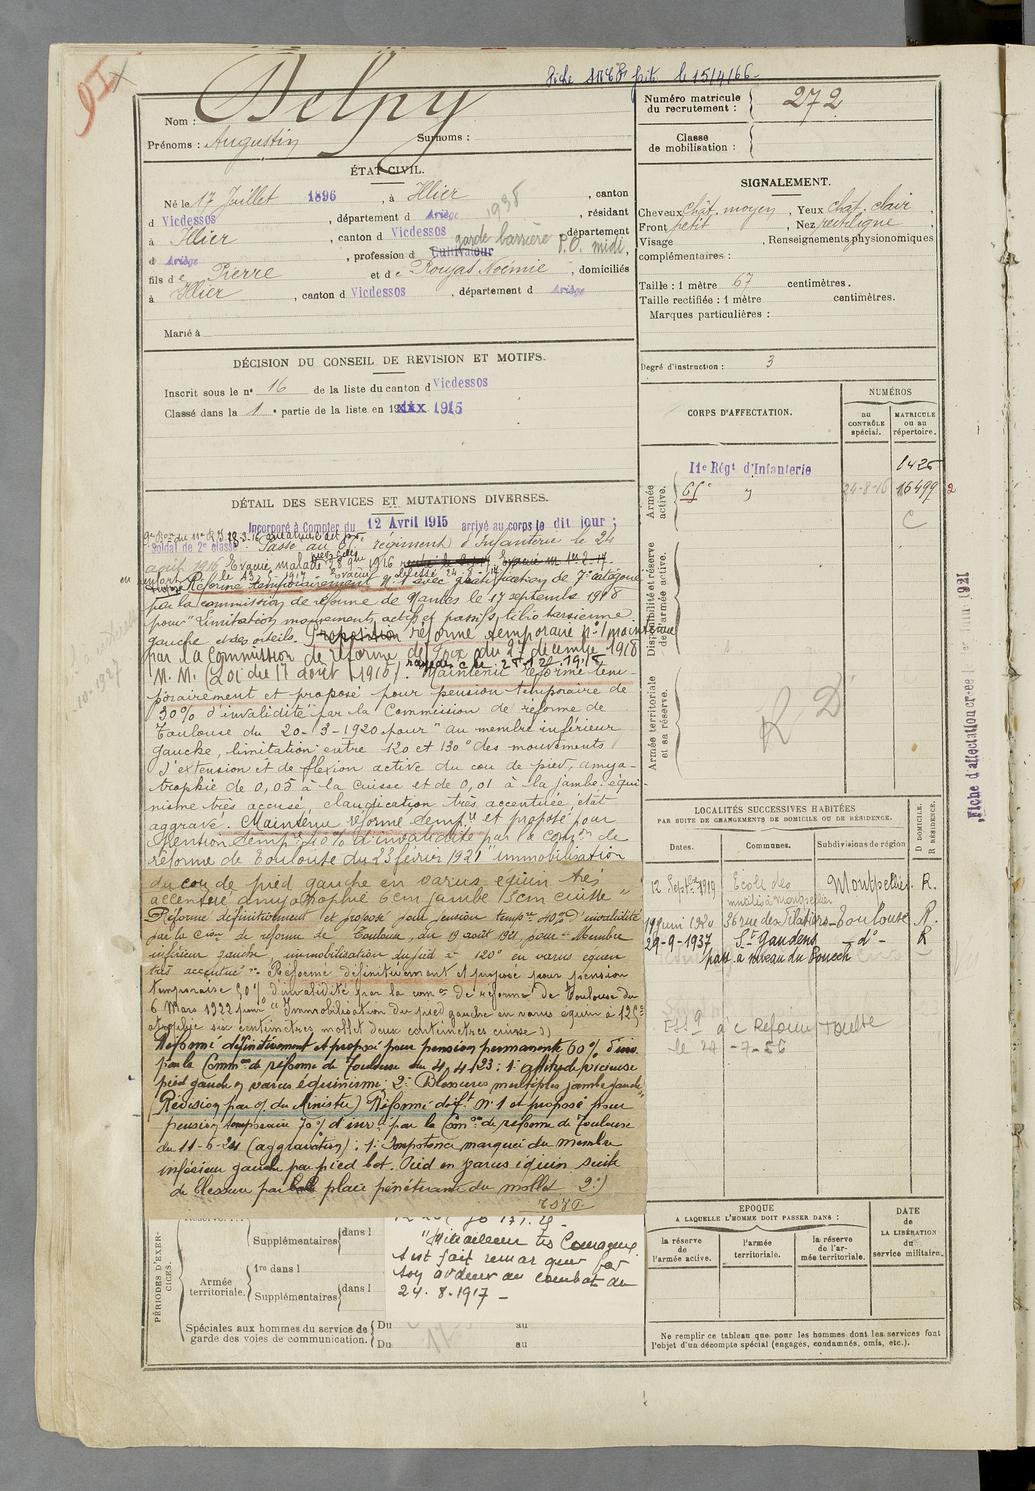 Fiche faite le 15/4/66
Nom : Delpy
Prénoms : Augustin Surnoms :
Numéro matricule du recrutement : 272
Classe de mobilisation :
ÉTAT CIVIL.
Né le 17 Juillet 1896, à Illier, canton
d Vicdessos, département d Ariège, résidant
1938
à Illier, canton d Vicdessos, département
d Ariège, profession d Cultivateur garde barrière P.O. midi,
fils d e Pierre et d e Roujas Noémie, domiciliés
à Illier, canton d Vicdessos, département d Ariège
Marié à
SIGNALEMENT.
Cheveux chât. moyen, Yeux chât. clair,
Front petit, Nez rectiligne,
Visage , Renseignements physionomiques
complémentaires :
Taille : 1 mètre 67 centimètres.
Taille rectifiée : 1 mètre centimètres.
Marques particulières :
Degré d'instruction : 3
DÉCISION DU CONSEIL DE REVISION ET MOTIFS.
Inscrit sous le n° 16 de la liste du canton d Vicdessos
Classé dans la 1e partie de la liste en 19 xxx 1915
CORPS D'AFFECTATION.
NUMÉROS
au CONTRÔLE spécial.
MATRICULE ou au répertoire.
Armée active.
11e Régt d'Infanterie
65e 24-8-16 16499 2
C
Disponibilité et réserve de l'armée active.
Armée territoriale et sa réserve.
R. D
Fiche d'affectation créée 1921
DÉTAIL DES SERVICES ET MUTATIONS DIVERSES.
Incorporé à Compter du 12 Avril 1915 arrivé au corps le dit jour ;
Soldat de 2e classe. Passé au 65e régiment d'Infanterie le 24
août 1916 Evacué malade 28 9bre 1916
Réformé temporairement n° 1 avec gratification de 7e catégorie
par la commission de réforme de Nantes le 17 septembre 1918
pour "Limitation mouvements actifs et passifs, tibio tarsienne
gauche et des orteils. Proposition réforme temporaire n° 1 maintenue
par la Commission de réforme de Foix du 27 décembre 1918
M. M. (Loi du 17 août 1915). Maintenu réformé tem-
porairement et proposé pour pension temporaire de
30% d'invalidité par la Commission de réforme de
Toulouse du 20-3-1920 pour "au membre inférieur
gauche, limitation entre 120 et 130° des mouvements
d'extension et de flexion active du cou de pied, amyo-
trophie de 0,05 à la cuisse et de 0,01 à la jambe équi-
nisme très accusé, claudication très accentuée, état
aggravé. Maintenu réformé tempre et proposé pour
pension tempre 40% d'invalidité par la comon de
réforme de Toulouse du 23 février 1921 "immobilisation
du cou de pied gauche en varus equin très
accentué amyotrophie 6cm jambe 15cm cuisse"
Réformé définitivement et proposé pour pension tempre 40% d'invalidité
par la Cion de réforme de Toulouse, du 19 août 1921, pour "Membre
inférieur gauche immobilisation du pied à 120° en varus equin
très accentué". Réformé définitivement et proposé pour pension
temporaire 50% d'invalidité par la comon de réforme de Toulouse du
6 Mars 1922 pour "Immobilisation du pied gauche en varus equin à 125°
atrophie six centimètres mollet deux centimètres cuisse"
Réformé définitivement et proposé pour pension permanente 60% d'inv.
par la Common de réforme de Toulouse du 4/4/23 : 1° attitude vicieuse
pied gauche en varus équinisme ; 2° Blessures multiples jambe gauche
(Révision par o/ du Ministre) Réformé déft N° 1 et proposé pour
pension temporaire 70% d'inv. par la Comon de réforme de Toulouse
du 11-6-24 (aggravation) ; 1° Impotence marquée du membre
inférieur gauche par pied bot. Pied en varus équin suite
de blessure par balle plaie pénétrante du mollet 2°)
T.S.V.P.
LOCALITÉS SUCCESSIVES HABITÉES
PAR SUITE DE CHANGEMENTS DE DOMICILE OU DE RÉSIDENCE.
Dates. Communes. Subdivisions de région D. DOMICILE. R. RÉSIDENCE.
12 Septbre 1919 Ecole des mutilés à Montpellier Montpellier R.
19 Juin 1920 36 rue des Filatiers Toulouse R.
29-9-1937 St Gaudens - d° - R
pass. à niveau du Pouech
le 24-7-56
PÉRIODES D'EXERCICES.
Supplémentaires dans l
Armée territoriale.
1re dans l
Supplémentaires dans l
Spéciales aux hommes du service de garde des voies de communication.
Du au
Du au
"Mitrailleur très courageux
s'est fait remarquer par
son ardeur au combat du
24.8.1917 -
EPOQUE
A LAQUELLE L'HOMME DOIT PASSER DANS :
la réserve de l'armée active.
l'armée territoriale.
la réserve de l'armée territoriale.
DATE de LA LIBÉRATION du service militaire.
Ne remplir ce tableau que pour les hommes dont les services font
l'objet d'un décompte spécial (engagés, condamnés, omis, etc.).